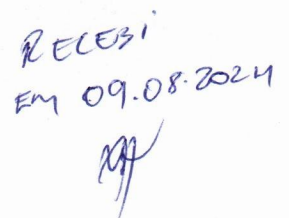 RECEBi
EM 09.08.2024